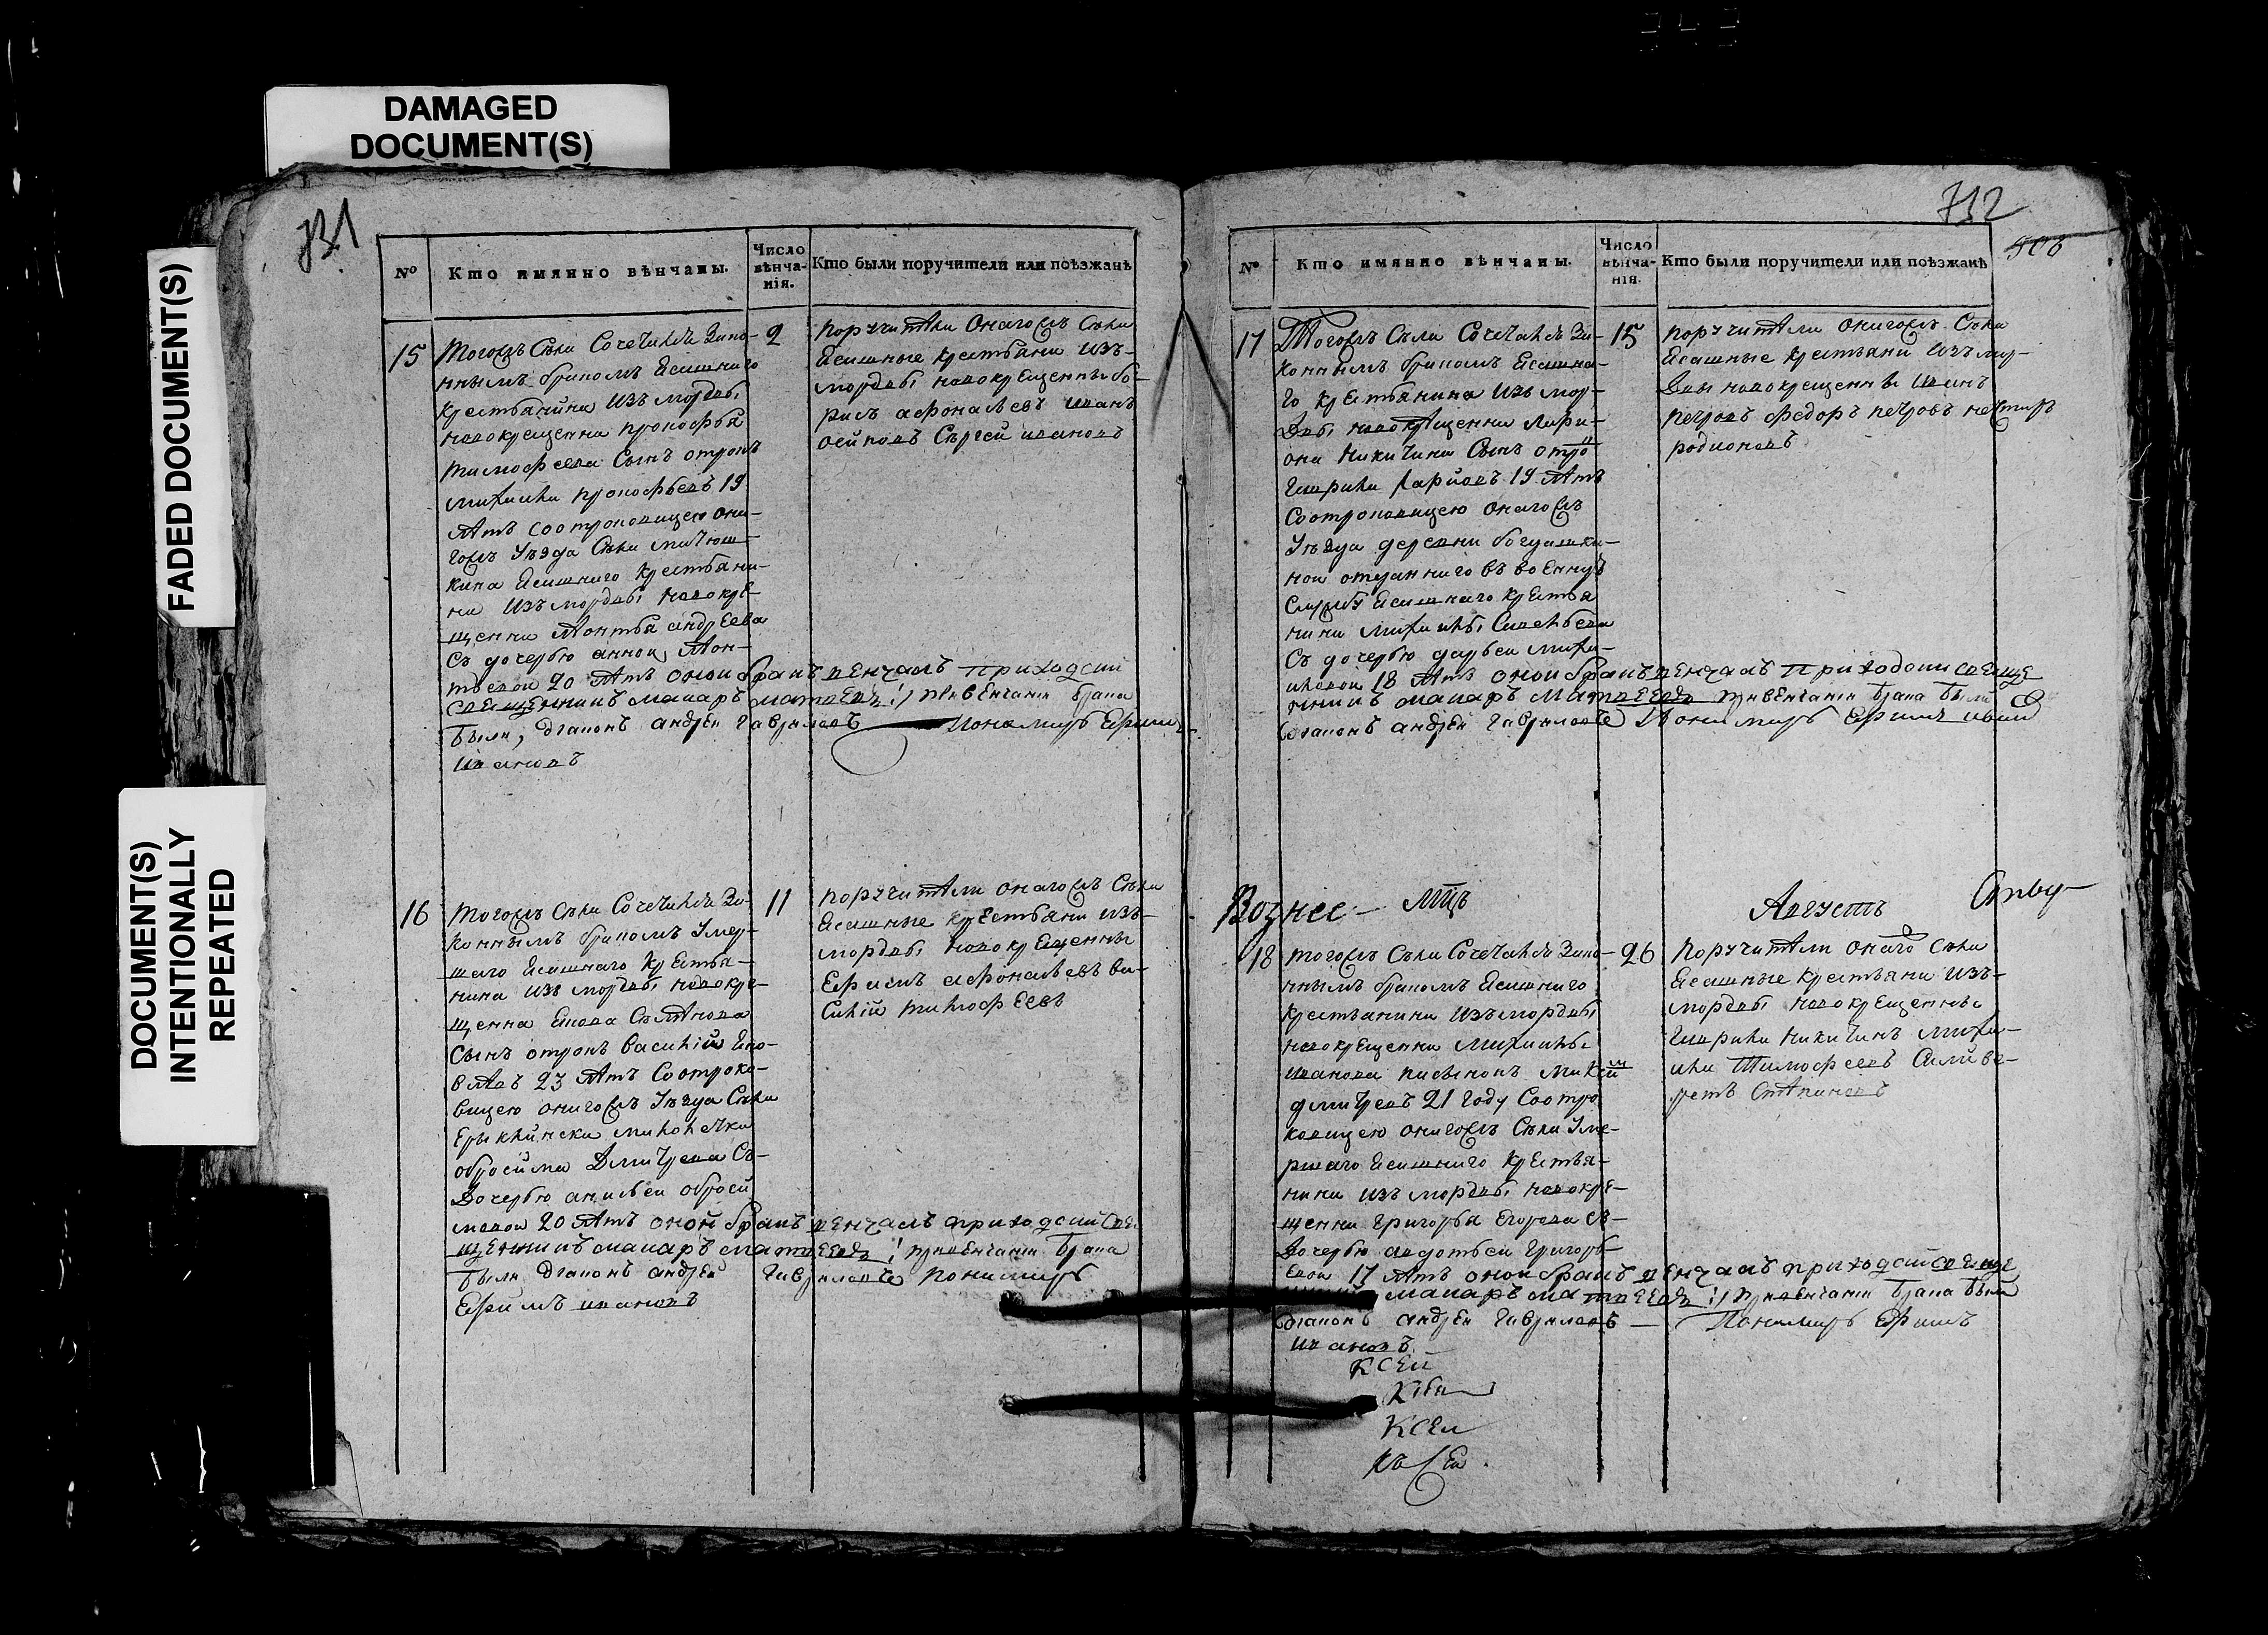 DAMAGED
DOCUMENT(S)
FADED DOCUMENT(S)
DOCUMENT(S)
INTENTIONALLY
REPEATED
731
№
Кто имянно вѣнчаны.
Число вѣнча-нія.
Кто были поручители или поѣзжанѣ
15
Тогожъ Села Сочетался Зако-
ннымъ бракомъ Ясашнаго
крестьянина изъ мордвы
новокрещенна прокофья
тимофеева Сынъ отрокъ
михаила прокофьевъ 19
летъ соотроковицею она-
гожъ уезда Села
Ясашнаго крестьяни-
на изъ мордвы новокре-
щенна леонтья андреева
съ дочерью анной леон-
тьевой 20 летъ оной бракъ венчалъ приходской
священникъ макаръ матвеевъ / при венчании брака
были, диаконъ андрей гавриловъ Пономарь Ефимъ
ивановъ
2
поручители Онагожъ Села
Ясашные крестьяни изъ-
мордвы новокрещенны бо-
рисъ афонасьевъ иванъ
осиповъ Сергей ивановъ
16
тогожъ села Сочетался За-
коннымъ бракомъ умер-
шаго Ясашнаго крестья-
нина изъ мордвы новокре-
щенна Якова
Сынъ отрокъ василий Яко-
влевъ 23 летъ Соотроко-
вицею онагожъ уезда Села
обросима Дмитрева Съ-
Дочерью оброси
мовой 20 летъ оной бракъ венчалъ приходской свя
щенникъ макаръ матвеевъ / при венчании брака
были диаконъ андрей гавриловъ пономарь
Ефимъ ивановъ
11
поручители онагожъ Села
Ясашные крестьяни изъ-
мордвы новокрещенны
Ефимъ афонасьевъ ва-
силий тимофеевъ
732
508
№
Кто имянно вѣнчаны.
Число вѣнча-нія.
Кто были поручители или поѣзжанѣ
17
Тогожъ Села Сочетался За-
коннымъ бракомъ Ясашна-
го крестьянина изъ мор-
Двы новокрещенна лари-
она Никитина Сынъ отро
гаврила ларионъ 19 летъ
Соотроковицею онагожъ
Уезда деревни
ной отданнаго въ военную
службу Ясашнаго крестья
нина михаилы Савельева
Съ дочерью дарьей миха-
иловой 18 летъ оной бракъ венчалъ приходской свяще
нникъ макаръ Матвеевъ при венчании брака были
диаконъ андрей гавриловъ Пономарь Ефимъ ивановъ
15
поручители онагожъ Села
Ясашные крестьяни изъ мор-
Двы новокрещенны иванъ
петровъ федоръ петровъ нестеръ
родионовъ
Вознес-
Мцъ
Августъ
18
тогожъ Села Сочетался Зако-
ннымъ бракомъ Ясашнаго
крестьянина изъ мордвы
новокрещенна михаилы
иванова
дмитревъ 21 году Соотро
ковицею онагожъ Села Уме-
ршаго Ясашнаго крестья-
нина изъ мордвы новокре-
щенна григорья Егорова съ-
Дочерью авдотьей григорь-
евой 17 летъ оной бракъ венчалъ приходской свяще
макаръ матвеевъ / при венчании брака были
диаконъ андрей гавриловъ — Пономарь Ефимъ
ивановъ
26
Поручители онаго села
Ясашные крестьяни изъ-
мордвы новокрещенны
гаврила никитинъ миха-
ила Тимофеевъ Сильве-
стръ Степановъ